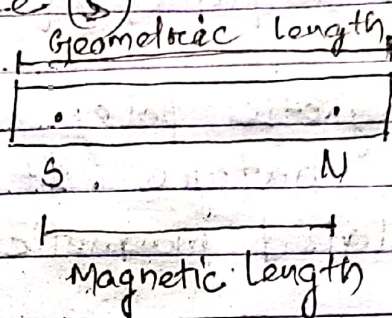 Geometric Length
S N
Magnetic Length